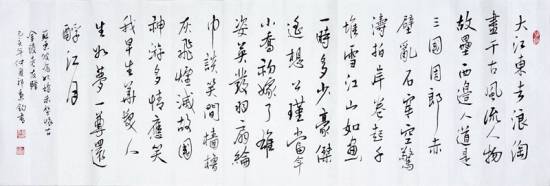 大江東去浪淘
盡千古風流人物
故壘西邊人道是
三國周郎赤
壁亂石穿空驚
濤拍岸卷起千
堆雪江山如畫
一時多少豪傑
遙想公瑾當年
小喬初嫁了雄
姿英發羽扇綸
巾談笑間檣櫓
灰飛煙滅故國
神游多情應笑
我早生華髮人
生如夢一尊還
酹江月
蘇東坡
己亥年仲夏